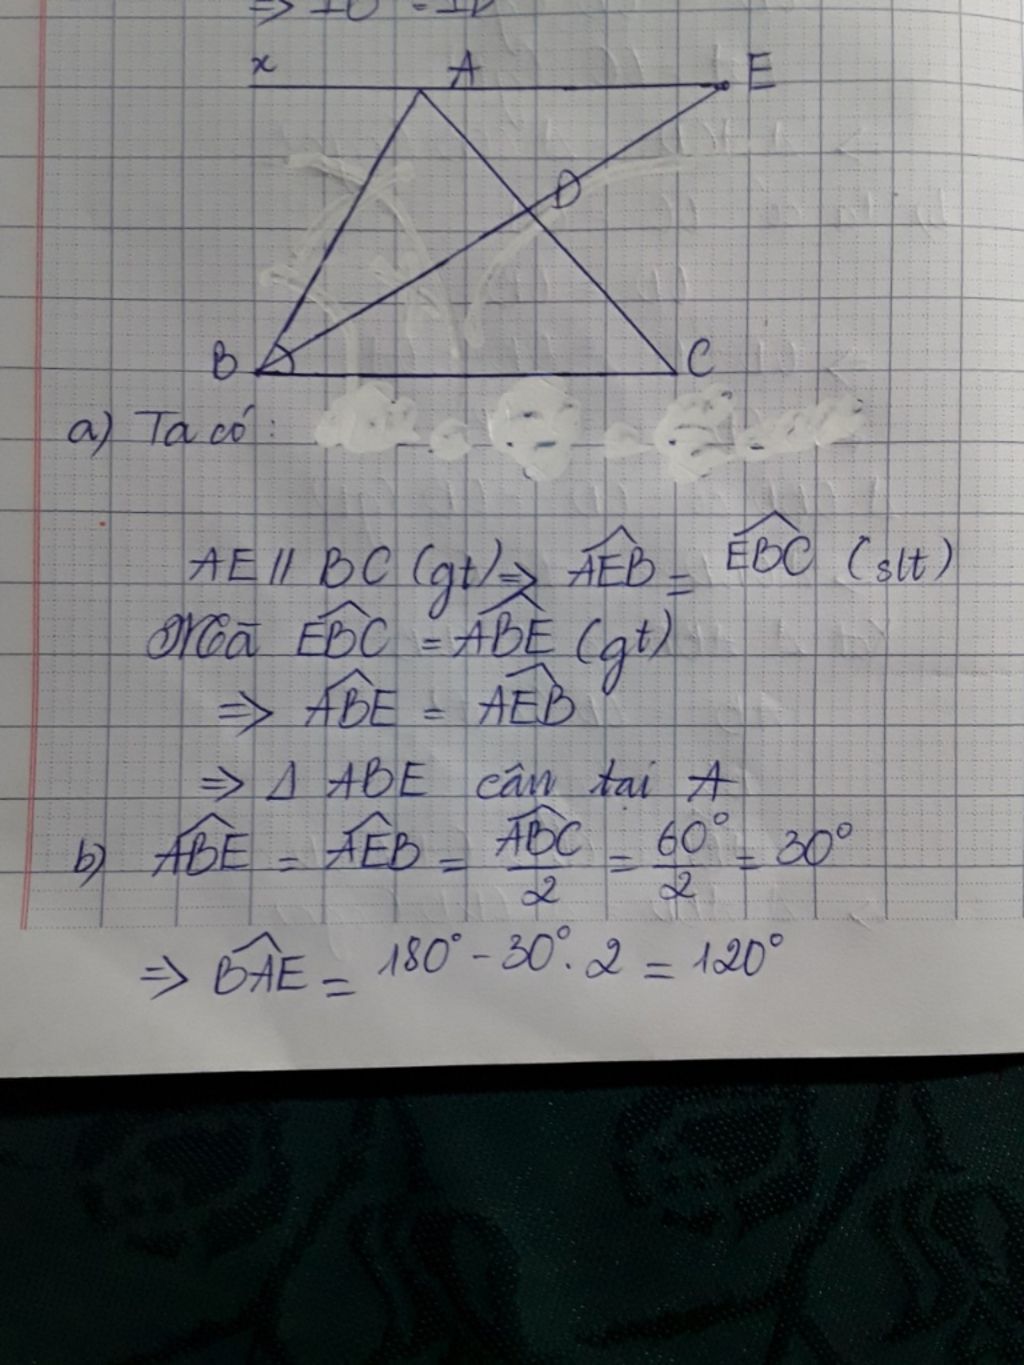 x A E
D
B C
a) Ta có:
AE // BC (gt) ⇒ \widehat{AEB} = \widehat{EBC} (slt)
Mà \widehat{EBC} = \widehat{ABE} (gt)
⇒ \widehat{ABE} = \widehat{AEB}
⇒ Δ ABE cân tại A
b) \widehat{ABE} = \widehat{AEB} = \frac{\widehat{ABC}}{2} = \frac{60°}{2} = 30°
⇒ \widehat{BAE} = 180° - 30° . 2 = 120°